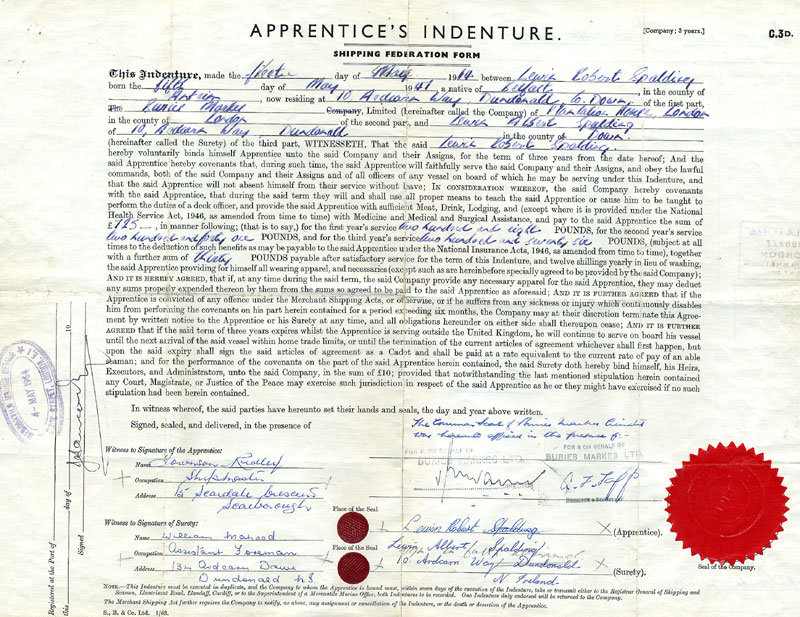 APPRENTICE'S INDENTURE.
[Company; 3 years.]
C.3D.
SHIPPING FEDERATION FORM
This Indenture, made the day of May 19 between Lewis Robert Spalding
born the fifth day of May 1941 a native of Belfast, in the county of
Antrim, now residing at 10, Ardcarn Way, Dundonald, Co. Down, of the first part,
The Buries Markes Company, Limited (hereinafter called the Company) of Plantation House, London
in the county of London of the second part, and Lewis Albert Spalding
of 10, Ardcarn Way Dundonald in the county of Down
(hereinafter called the Surety) of the third part, WITNESSETH, That the said Lewis Robert Spalding
hereby voluntarily binds himself Apprentice unto the said Company and their Assigns, for the term of three years from the date hereof; And the
said Apprentice hereby covenants that, during such time, the said Apprentice will faithfully serve the said Company and their Assigns, and obey the lawful
commands, both of the said Company and their Assigns and of all officers of any vessel on board of which he may be serving under this Indenture, and
that the said Apprentice will not absent himself from their service without leave; IN CONSIDERATION WHEREOF, the said Company hereby covenants
with the said Apprentice, that during the said term they will and shall use all proper means to teach the said Apprentice or cause him to be taught to
perform the duties of a deck officer, and provide the said Apprentice with sufficient Meat, Drink, Lodging, and (except where it is provided under the National
Health Service Act, 1946, as amended from time to time) with Medicine and Medical and Surgical Assistance, and pay to the said Apprentice the sum of
£725-, in manner following; (that is to say,) for the first year's service two hundred and eight POUNDS, for the second year's service
two hundred and forty one POUNDS, and for the third year's service two hundred and seventy six POUNDS, (subject at all
times to the deduction of such benefits as may be payable to the said Apprentice under the National Insurance Acts, 1946, as amended from time to time), together
with a further sum of thirty POUNDS payable after satisfactory service for the term of this Indenture, and twelve shillings yearly in lieu of washing,
the said Apprentice providing for himself all wearing apparel, and necessaries (except such as are hereinbefore specially agreed to be provided by the said Company);
AND IT IS HEREBY AGREED, that if, at any time during the said term, the said Company provide any necessary apparel for the said Apprentice, they may deduct
any sums properly expended thereby by them from the sums so agreed to be paid to the said Apprentice as aforesaid; AND IT IS FURTHER AGREED that if the
Apprentice is convicted of any offence under the Merchant Shipping Acts, or otherwise, or if he suffers from any sickness or injury which continuously disables
him from performing the covenants on his part herein contained for a period exceeding six months, the Company may at their discretion terminate this Agree-
ment by written notice to the Apprentice or his Surety at any time, and all obligations hereunder on either side shall thereupon cease; AND IT IS FURTHER
AGREED that if the said term of three years expires whilst the Apprentice is serving outside the United Kingdom, he will continue to serve on board his vessel
until the next arrival of the said vessel within home trade limits, or until the termination of the current articles of agreement whichever shall first happen, but
upon the said expiry shall sign the said articles of agreement as a Cadet and shall be paid at a rate equivalent to the current rate of pay of an able
seaman; and for the performance of the covenants on the part of the said Apprentice herein contained, the said Surety doth hereby bind himself, his Heirs,
Executors, and Administrators, unto the said Company, in the sum of £10; provided that notwithstanding the last mentioned stipulation herein contained
any Court, Magistrate, or Justice of the Peace may exercise such jurisdiction in respect of the said Apprentice as he or they might have exercised if no such
stipulation had been herein contained.
In witness whereof, the said parties have hereunto set their hands and seals, the day and year above written.
Signed, sealed, and delivered, in the presence of
The Common Seal of Buries Markes Limited
was hereunto affixed in the presence of:-
FOR & ON BEHALF OF
BURIES MARKES LTD.
FOR & ON BEHALF OF
BURIES MARKES LTD.
Witness to Signature of the Apprentice:
Name Ridley
Occupation Shipmaster
Address 15 Scardale Crescent
Scarborough
Place of the Seal
Lewis Robert Spalding (Apprentice).
Witness to Signature of Surety:
Name William Mahood
Occupation Assistant Foreman
Address 134 Ardcarn Drive
Dundonald
Place of the Seal
Lewis Albert Spalding
10 Ardcarn Way Dundonald
N. Ireland (Surety).
Seal of the Company.
NOTE.—This Indenture must be executed in duplicate, and the Company to whom the Apprentice is bound must, within seven days of the execution of the Indenture, take or transmit either to the Registrar General of Shipping and
Seamen, Llantrisant Road, Llandaff, Cardiff, or to the Superintendent of a Mercantile Marine Office, both Indentures to be recorded. One Indenture duly endorsed will be returned to the Company.
The Merchant Shipping Act further requires the Company to notify, as above, any assignment or cancellation of the Indenture, or the death or desertion of the Apprentice.
S., B. & Co. Ltd. 1/63.
Registered at the Port of
this day of 19
Signed